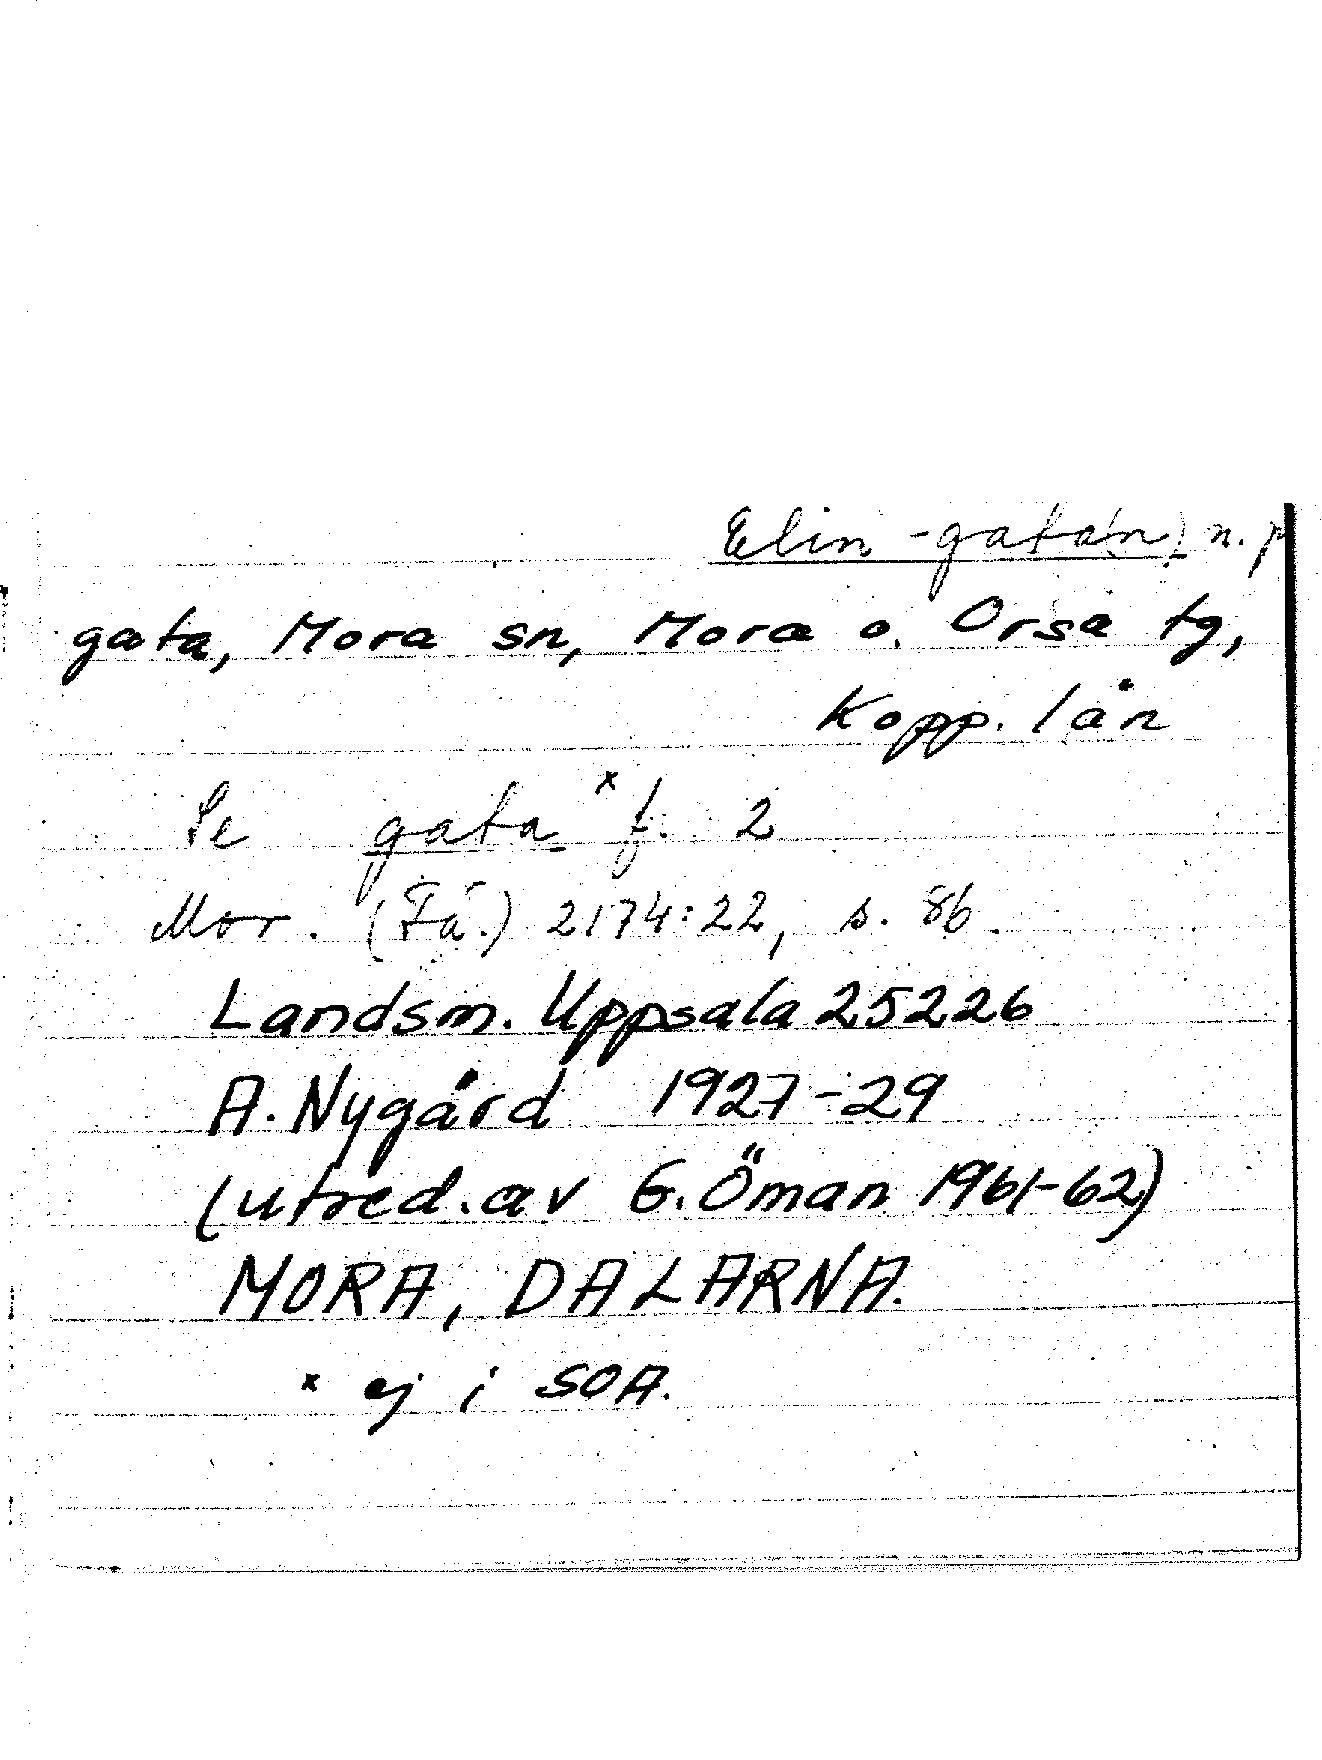 Elin-gata(n) n. p
gata, Mora sn, Mora o. Orsa tg,
Kopp. län
Se gata x f. 2
Mor. (Få.) 2174:22, s. 86.
Landsm. Uppsala 25226
A. Nygård 1927-29
(utred. av G. Öman 1961-62)
MORA, DALARNA.
x ej i SOA.